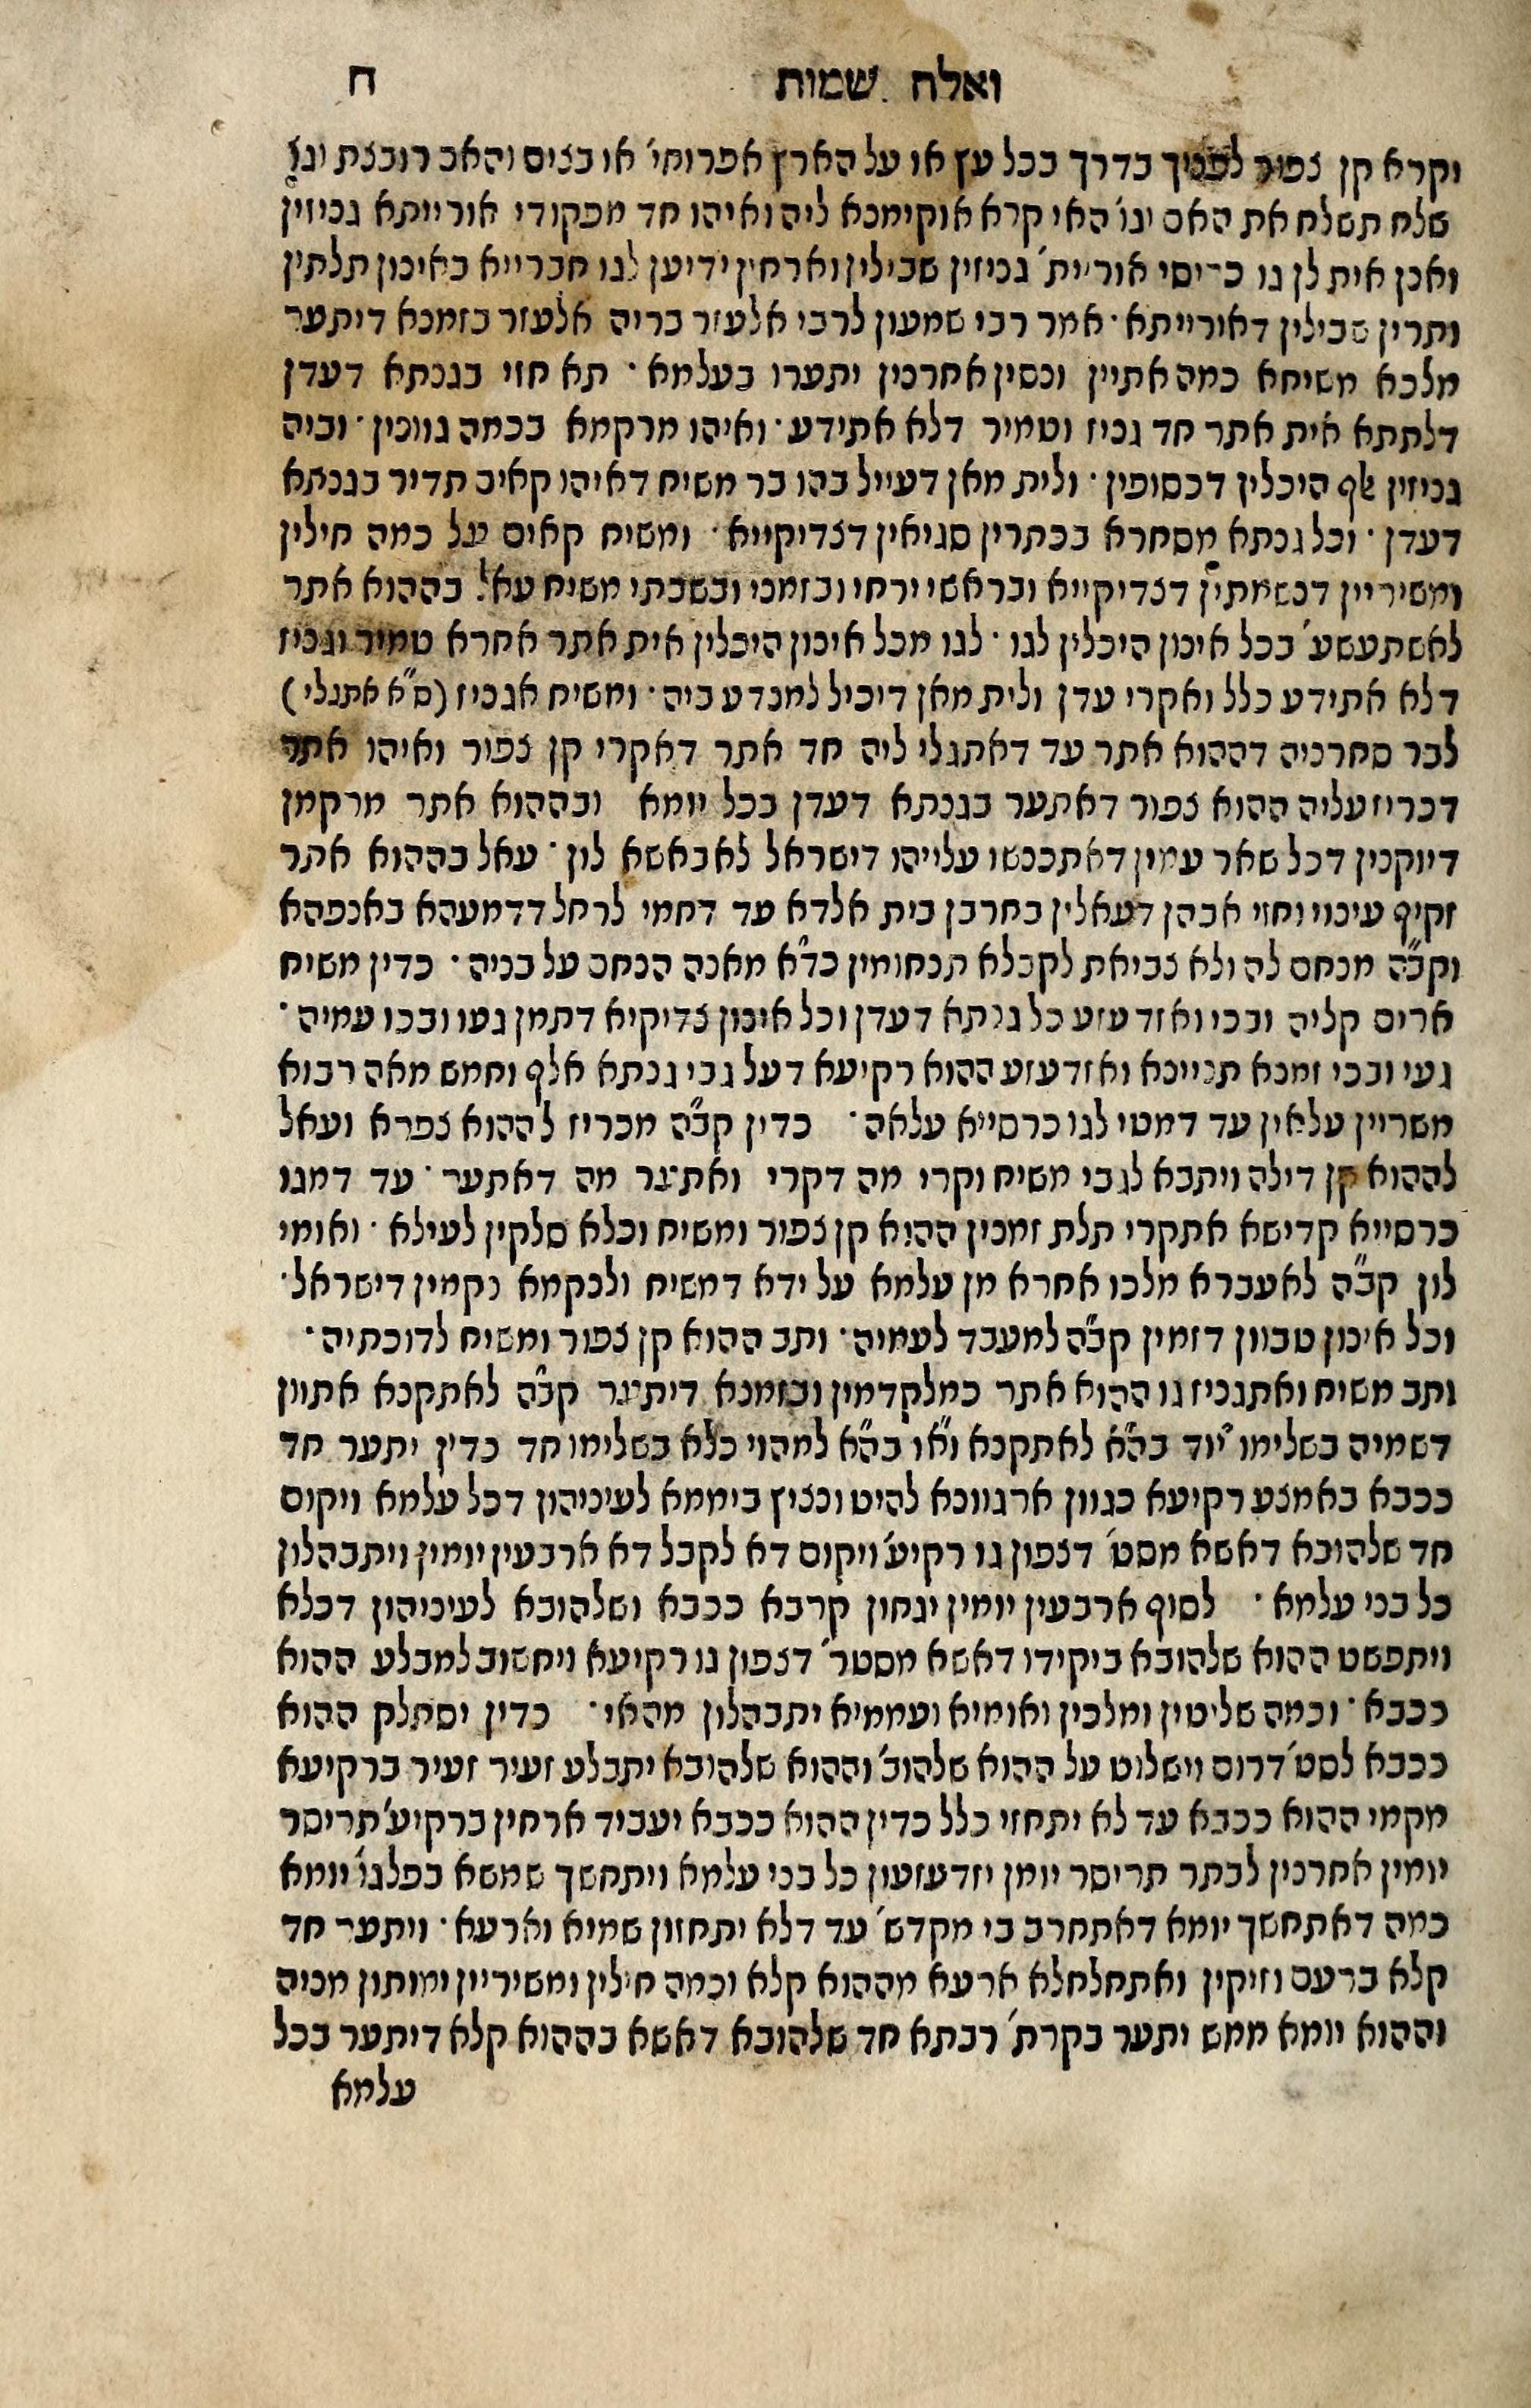 ואלה שמות ח
וקרא קן צפור לפניך בדרך בכל עץ או על הארץ אפרוחי׳ או בצים והאם רובצת וגו׳
שלח תשלח את האם וגו׳ האי קרא אוקימנא ליה ואיהו חד מפקודי אורייתא גניזין
ואנן אית לן גו כריסי אוריית׳ גניזין שבילין וארחין ידיען לגו חברייא באינון תלתין
ותרין שבילין דאורייתא · אמר רבי שמעון לרבי אלעזר בריה אלעזר בזמנא דיתער
מלכא משיחא כמה אתיין ונסין אחרנין יתערו בעלמא · תא חזי בגנתא דעדן
דלתתא אית אתר חד גניז וטמיר דלא אתידע · ואיהו מרקמא בכמה גוונין · וביה
גניזין אלף היכלין דכסופין · ולית מאן דעייל בהו בר משיח דאיהו קאים תדיר בגנתא
דעדן · וכל גנתא מסחרא בכתרין סגיאין דצדיקייא · ומשיח קאים על כמה חילין
ומשיריין דנשמתין דצדיקייא ובראשי ירחי ובזמני ובשבתי משיח עאל בההוא אתר
לאשתעשע׳ בכל אינון היכלין לגו · לגו מכל אינון היכלין אית אתר אחרא טמיר וגניז
דלא אתידע כלל ואקרי עדן ולית מאן דיכיל למנדע ביה · ומשיח אגניז (ס״א אתגלי)
לבר סחרניה דההוא אתר עד דאתגלי ליה חד אתר דאקרי קן צפור ואיהו אתר
דכריז עליה ההוא צפור דאתער בגנתא דעדן בכל יומא ובההוא אתר מרקמן
דיוקנין דכל שאר עמין דאתכנשו עלייהו דישראל לאבאשא לון · עאל בההוא אתר
זקיף עינוי וחזי אבהן דעאלין בחרבן בית אלדא עד דחמי לרחל דדמעהא באנפהא
וקב״ה מנחם לה ולא צביאת לקבלא תנחומין כד״א מאנה הנחם על בניה · כדין משיח
ארים קליה ובכי ואזדעזע כל גנתא דעדן וכל אינון צדיקיא דתמן געו ובכו עמיה ·
געי ובכי זמנא תניינא ואזדעזע ההוא רקיעא דעל גבי גנתא אלף וחמש מאה רבוא
משריין עלאין עד דמטי לגו כרסייא עלאה · כדין קב״ה מכריז לההוא צפרא ועאל
לההוא קן דילה ויתבא לגבי משיח וקרי מה דקרי ואתער מה דאתער · עד דמגו
כרסייא קדישא אתקרי תלת זמנין ההוא קן צפור ומשיח וכלא סלקין לעילא · ואומי
לון קב״ה לאעברא מלכו אחרא מן עלמא על ידא דמשיח ולנקמא נקמין דישראל ·
וכל אינון טבוון דזמין קב״ה למעבד לעמיה · ותב ההוא קן צפור ומשיח לדוכתיה ·
ותב משיח ואתגניז גו ההוא אתר כמלקדמין ובזמנא דיתער קב״ה לאתקנא אתוון
דשמיה בשלימו יו״ד בה״א לאתקנא וא״ו בה״א למהוי כלא בשלימו חד כדין יתער חד
ככבא באמצע רקיעא כגוון ארגוונא להיט ונציץ ביממא לעיניהון דכל עלמא ויקום
חד שלהובא דאשא מסט׳ דצפון גו רקיע׳ ויקום דא לקבל דא ארבעין יומין ויתבהלון
כל בני עלמא · לסוף ארבעין יומין יגחון קרבא ככבא ושלהובא לעיניהון דכלא
ויתפשט ההוא שלהובא ביקידו דאשא מסטר׳ דצפון גו רקיעא ויחשוב למבלע ההוא
ככבא · וכמה שליטין ומלכין ואומיא ועממיא יתבהלון מהאי · כדין יסתלק ההוא
ככבא לסט׳ דרום וישלוט על ההוא שלהוב׳ וההוא שלהובא יתבלע זעיר זעיר ברקיעא
מקמי ההוא ככבא עד לא יתחזי כלל כדין ההוא ככבא יעביד ארחין ברקיע׳ תריסר
יומין אחרנין לבתר תריסר יומן יזדעזעון כל בני עלמא ויתחשך שמשא בפלגו׳ יומא
כמה דאתחשך יומא דאתחרב בי מקדש׳ עד דלא יתחזון שמיא וארעא · ויתער חד
קלא ברעם וזיקין ואתחלחלא ארעא מההוא קלא וכמה חילין ומשיריין ימותון מניה
וההוא יומא ממש יתער בקרת׳ רבתא חד שלהובא דאשא בההוא קלא דיתער בכל
עלמא